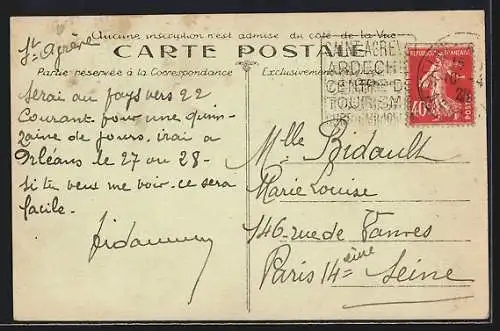 Aucune inscription n'est admise du côté de la Vue
St Agrève
CARTE POSTALE
Partie réservée à la Correspondance
Exclusivement
SAINT-AGRÈVE
ARDÈCHE
CENTRE DE
TOURISME
RÉPUBLIQUE FRANÇAISE
40c
Serai au pays vers 22
Courant pour une quin-
zaine de jours, irai à
Orléans le 27 ou 28-
Si tu veux me voir - ce sera
facile.
Mlle Bidault
Marie Louise
146 rue de Vanves
Paris 14ème Seine